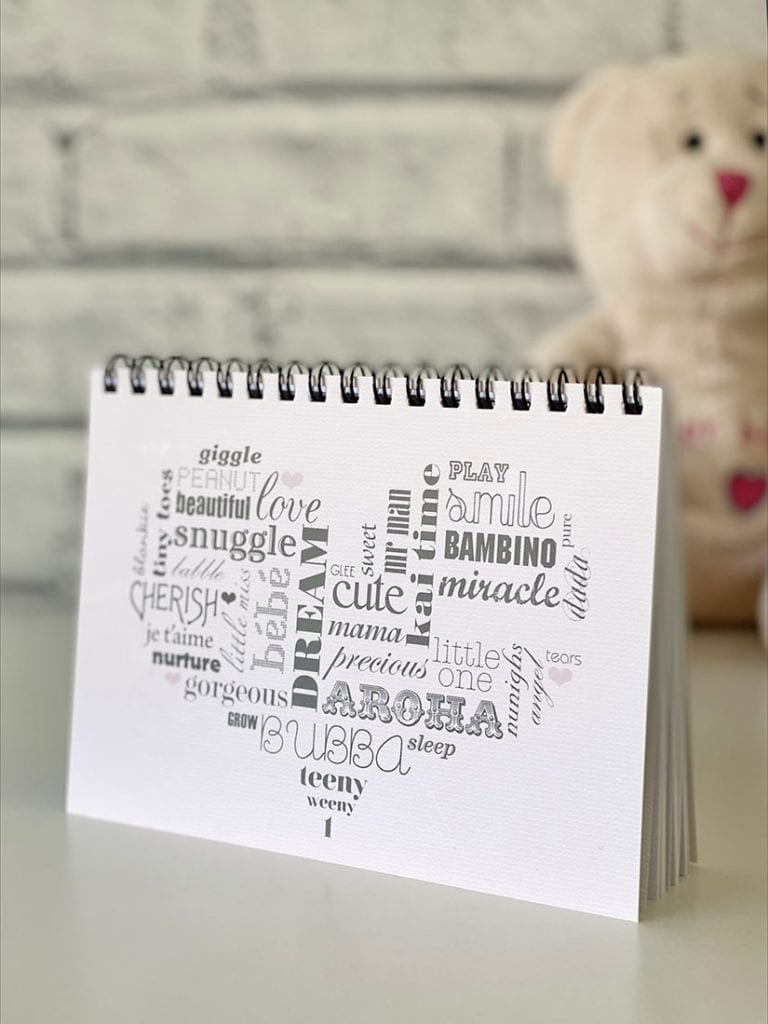 giggle
PEANUT
beautiful
love
blankie
tiny toes
snuggle
babble
CHERISH
little miss
bébé
DREAM
je t'aime
nurture
gorgeous
GLEE
sweet
mr man
kai time
cute
mama
precious
PLAY
smile
BAMBINO
pure
miracle
dada
little
one
nunighs
angel
tears
AROHA
GROW
BUBBA
sleep
teeny
weeny
1